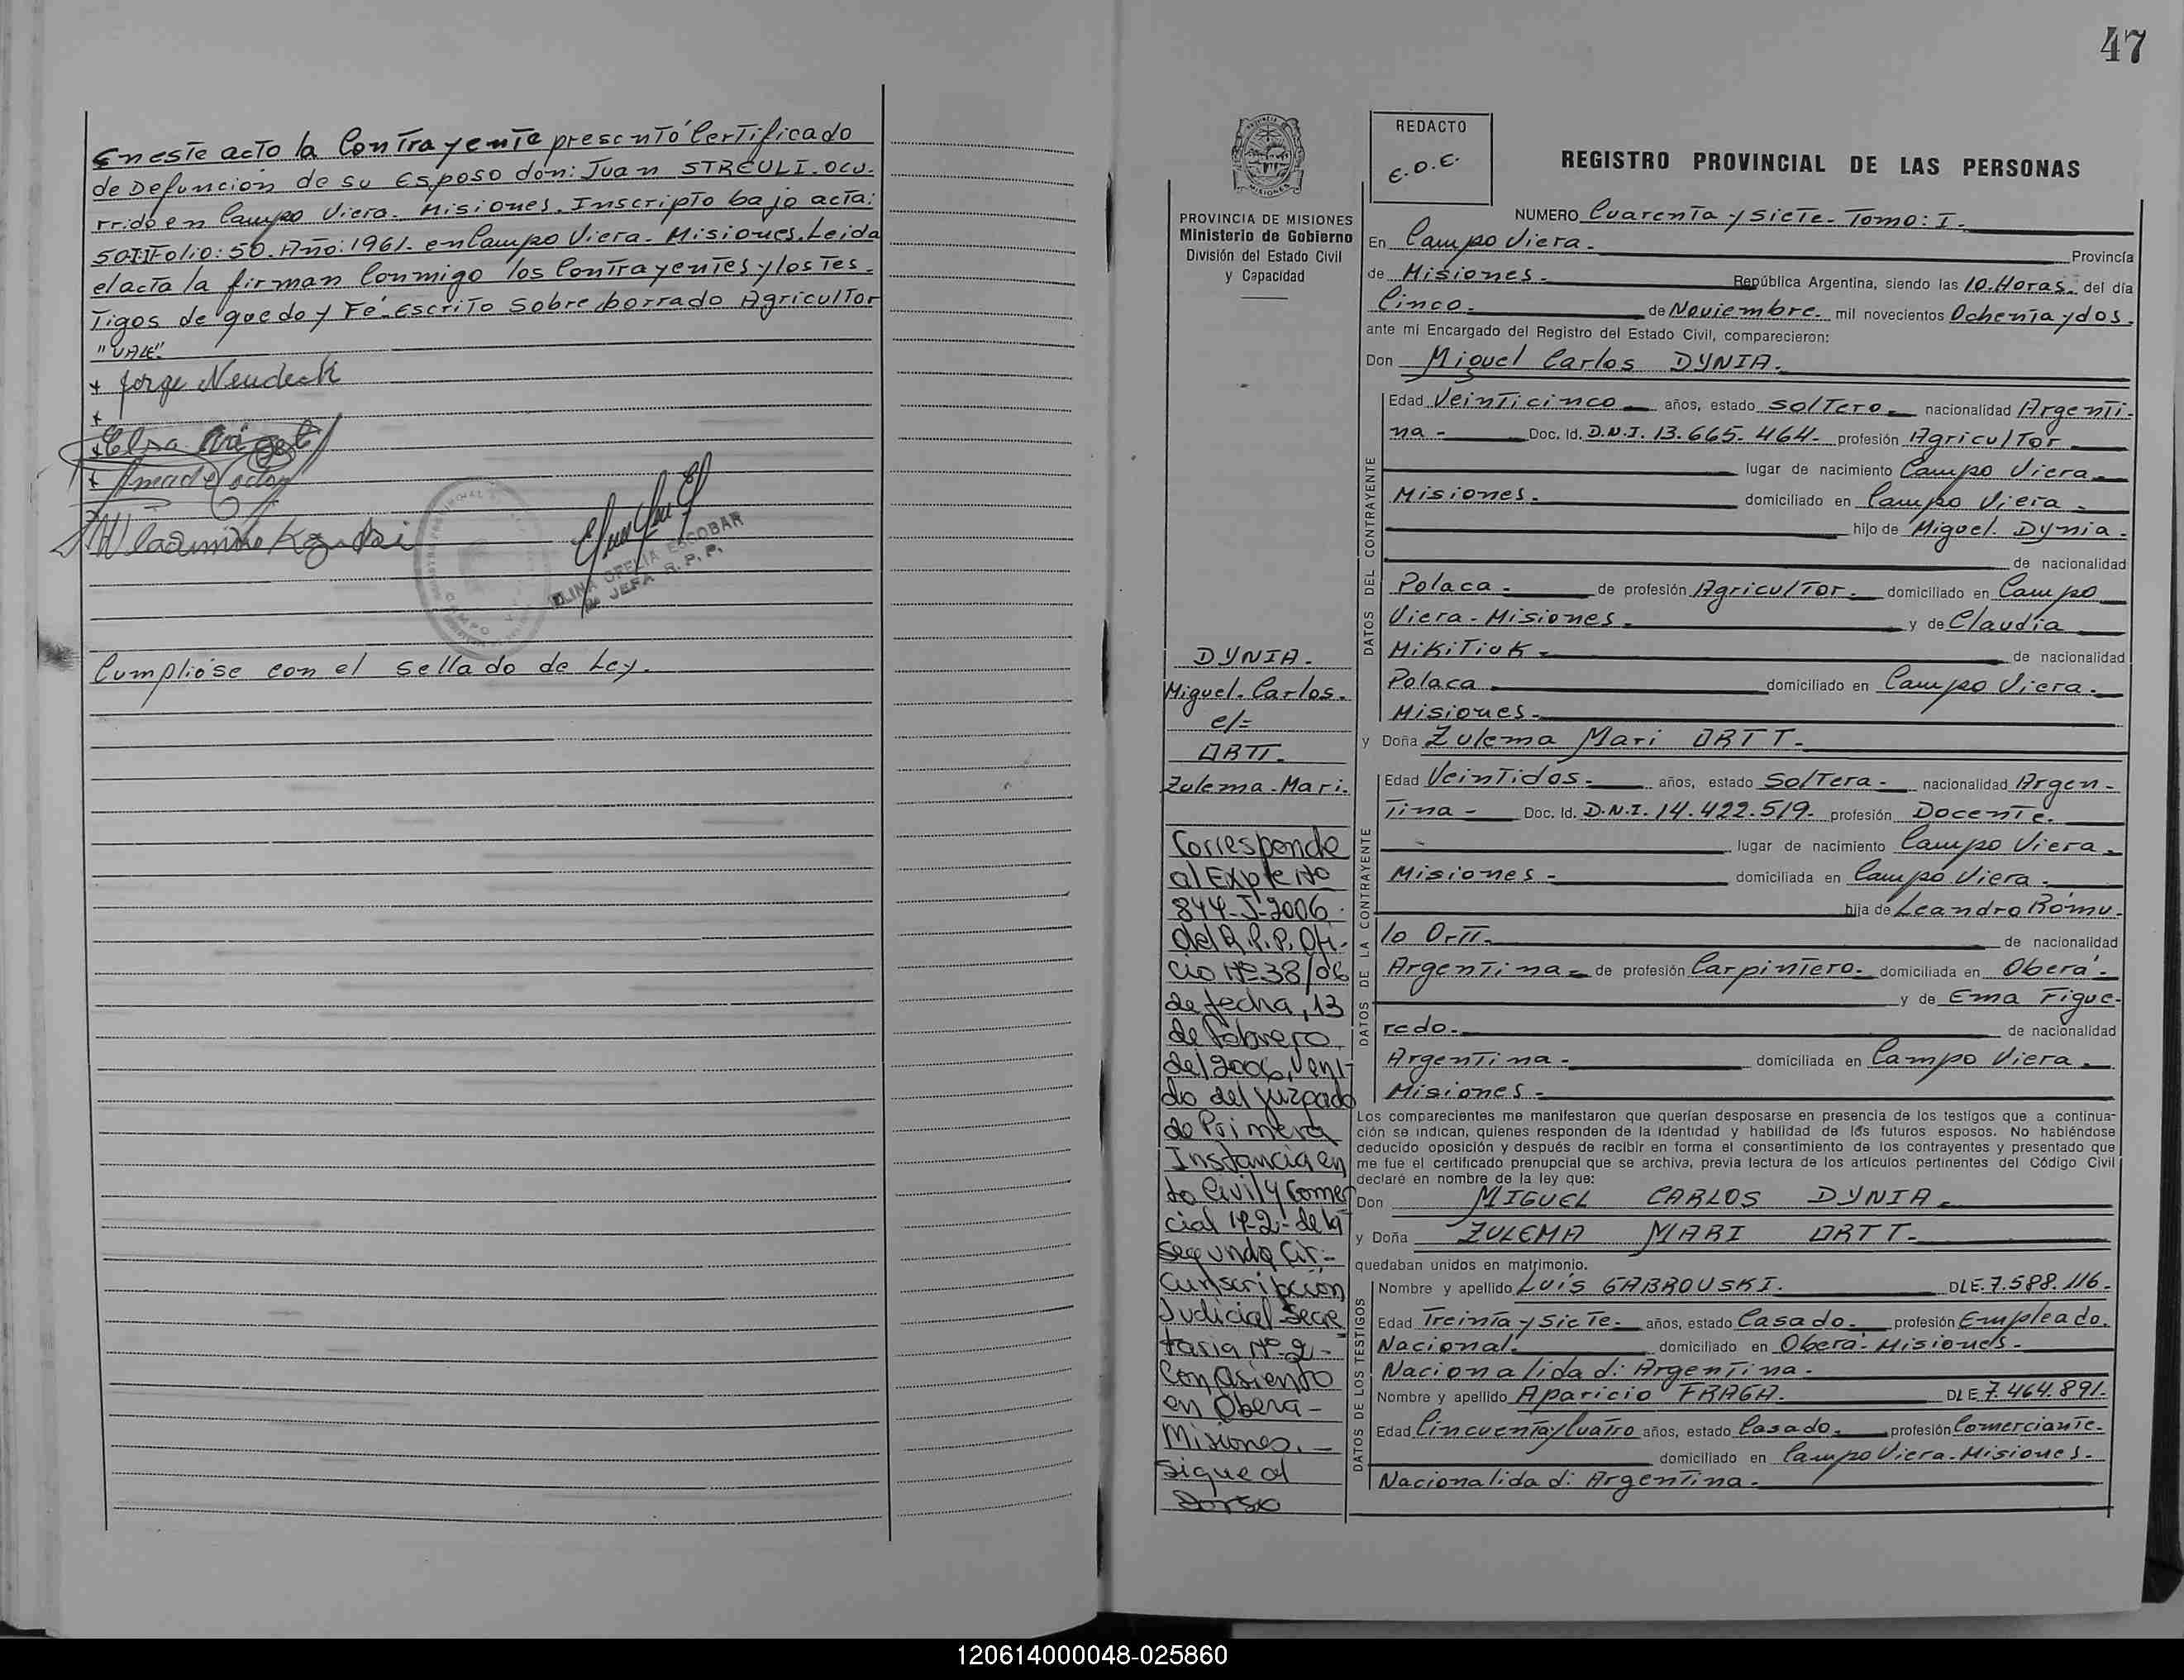 En este acto la Contrayente presentó Certificado
de Defunción de su Esposo don: Juan STREULI. ocu-
rrido en Campo Viera. Misiones. Inscripto bajo acta:
50.T:I Folio: 50. Año: 1961. en Campo Viera. Misiones. Leida
el acta la firman Conmigo los Contrayentes y los Tes-
Tigos de que doy Fé. Escrito Sobre borrado Agricultor
"VALE".
+ Jorge Neudeck
+
+ Elsa
+
Wladimiro
ELINA OFELIA ESCOBAR
JEFA R. P. P.
Cumplióse con el sellado de Ley.
47
REDACTO
E.O.E.
REGISTRO PROVINCIAL DE LAS PERSONAS
PROVINCIA DE MISIONES
Ministerio de Gobierno
División del Estado Civil
y Capacidad
NUMERO Cuarenta y Siete. Tomo: I.
En Campo Viera. Provincia
de Misiones. República Argentina, siendo las 10. Horas. del día
Cinco. de Noviembre. mil novecientos Ochenta y dos.
ante mi Encargado del Registro del Estado Civil, comparecieron:
Don Miguel Carlos DYNIA.
DATOS DEL CONTRAYENTE
Edad Veinticinco años, estado soltero nacionalidad Argenti-
na - Doc. Id. D.N.I. 13.665.464. profesión Agricultor
lugar de nacimiento Campo Viera
Misiones. domiciliado en Campo Viera.
hijo de Miguel. Dynia.
de nacionalidad
Polaca. de profesión Agricultor. domiciliado en Campo
Viera - Misiones. y de Claudia
Mikitiuk de nacionalidad
Polaca domiciliado en Campo Viera.
Misiones.
y Doña Zulema Mari ORTT.
DATOS DE LA CONTRAYENTE
Edad Veintidos. años, estado Soltera. nacionalidad Argen-
tina - Doc. Id. D.N.I. 14.422.519. profesión Docente.
lugar de nacimiento Campo Viera
Misiones - domiciliada en Campo Viera.
hija de Leandro Romu-
lo Ortt. de nacionalidad
Argentina de profesión Carpintero. domiciliada en Oberá.
y de Ema Figue-
redo. de nacionalidad
Argentina. domiciliada en Campo Viera
Misiones
Los comparecientes me manifestaron que querían desposarse en presencia de los testigos que a continua-
ción se indican, quienes responden de la identidad y habilidad de los futuros esposos. No habiéndose
deducido oposición y después de recibir en forma el consentimiento de los contrayentes y presentado que
me fue el certificado prenupcial que se archiva, previa lectura de los artículos pertinentes del Código Civil
declaré en nombre de la ley que:
Don MIGUEL CARLOS DYNIA.
y Doña ZULEMA MARI ORTT.
quedaban unidos en matrimonio.
DATOS DE LOS TESTIGOS
Nombre y apellido Luis GABROUSKI. DLE. 7.588.116.
Edad Treinta y Siete. años, estado Casado. profesión Empleado.
Nacional. domiciliado en Oberá. Misiones.
Nacionalidad: Argentina.
Nombre y apellido Aparicio FRAGA. DLE 7.464.891.
Edad Cincuenta y Cuatro años, estado Casado. profesión Comerciante.
domiciliado en Campo Viera. Misiones.
Nacionalidad: Argentina.
DYNIA.
Miguel. Carlos.
c/=
ORTT.
Zulema. Mari.
Corresponde
al Expte No
844-J-2006
del R.P.P. Ofi-
cio Nº 38/06
de fecha, 13
de Febrero
del 2006, veni-
do del Juzgado
de Primera
Instancia en
lo Civil y Comer
cial Nº 2 - de la
Segunda Cir-
cunscripción
Judicial Secre
taria Nº 2 -
Con asiento
en Oberá -
Misiones. -
Sigue al
Dorso
120614000048-025860